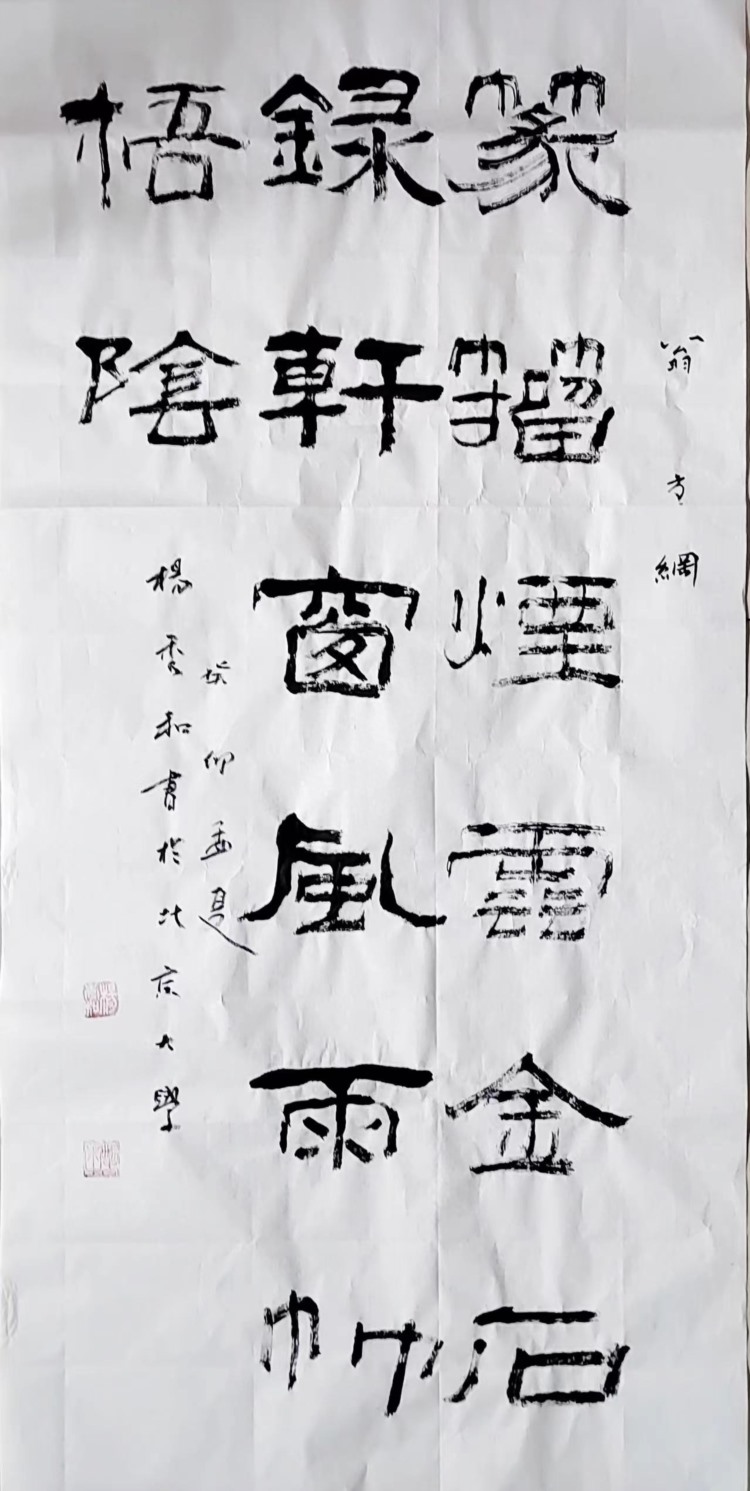 翁方綱
篆籀煙雲金石
録軒窗風雨竹
梧陰
癸卯孟夏
楊秀和書於北京大學